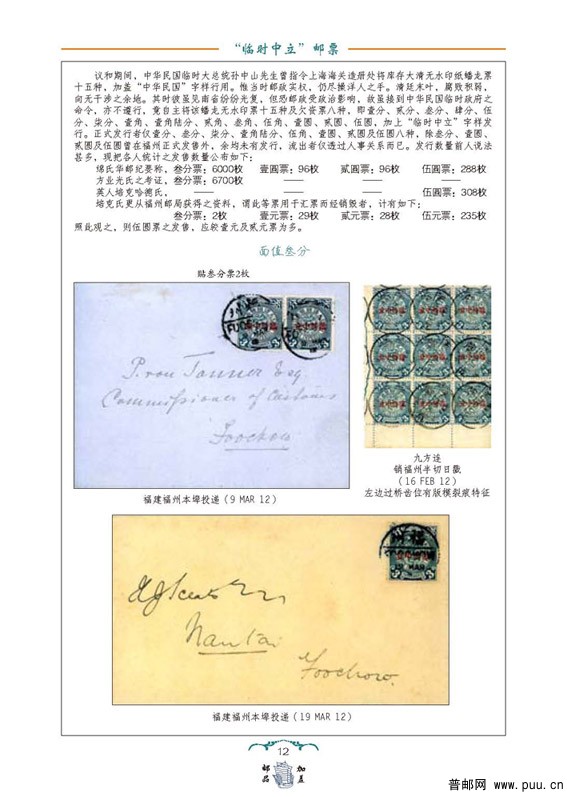 “临时中立”邮票
议和期间，中华民国临时大总统孙中山先生曾指令上海海关造册处将库存大清无水印纸蟠龙票
十五种，加盖“中华民国”字样行用。惟当时邮政实权，仍尽操洋人之手。清廷末叶，腐败积弱，
向无干涉之余地。其时彼虽见南省纷纷光复，但恐邮政受政治影响，故虽接到中华民国临时政府之
命令，亦不遵行，竟自主将该蟠龙无水印票十五种及欠资票八种，即壹分、贰分、叁分、肆分、伍
分、柒分、壹角、壹角陆分、贰角、叁角、伍角、壹圆、贰圆、伍圆，加上“临时中立”字样发
行。正式发行者仅壹分、叁分、柒分、壹角陆分、伍角、壹圆、贰圆及伍圆八种，除叁分、壹圆、
贰圆及伍圆曾在福州正式发售外，余均未有发行，流出者仅透过人事关系而已。发行数量前人说法
甚多，现把各人统计之发售数量公布如下：
绵氏华邮纪要称，叁分票：6000枚 壹圆票：96枚 贰圆票：96枚 伍圆票：288枚
方业光氏之考证，叁分票：6700枚 —— —— ——
英人培克哈德氏， —— —— —— 伍圆票：308枚
培克氏更从福州邮局获得之资料，谓此等票用于汇票而经销毁者，计有如下：
叁分票：2枚 壹元票：29枚 贰元票：28枚 伍元票：235枚
照此观之，则伍圆票之发售，应较壹元及贰元票为多。
面值叁分
贴叁分票2枚
P. von Tanner Esq
Commissioner of Customs
Foochow
福建福州本埠投递（9 MAR 12）
九方连
销福州半切日戳
（16 FEB 12）
左边过桥齿位有版模裂痕特征
Nantai
Foochow.
福建福州本埠投递（19 MAR 12）
12
邮品 加盖
普邮网 www.puu.cn